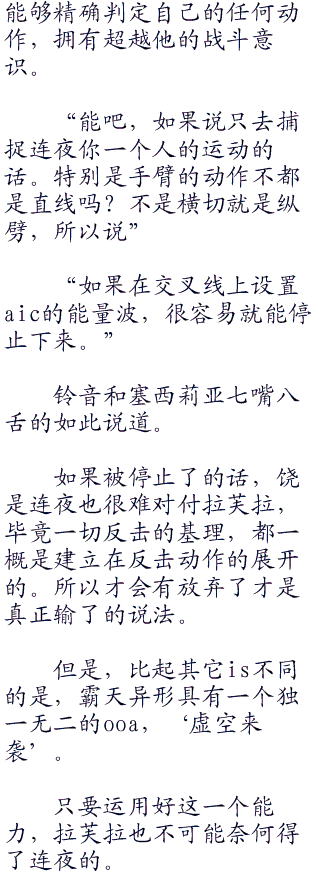 能够精确判定自己的任何动
作，拥有超越他的战斗意
识。
“能吧，如果说只去捕
捉连夜你一个人的运动的
话。特别是手臂的动作不都
是直线吗？不是横切就是纵
劈，所以说”
“如果在交叉线上设置
aic的能量波，很容易就能停
止下来。”
铃音和塞西莉亚七嘴八
舌的如此说道。
如果被停止了的话，饶
是连夜也很难对付拉芙拉，
毕竟一切反击的基理，都一
概是建立在反击动作的展开
的。所以才会有放弃了才是
真正输了的说法。
但是，比起其它is不同
的是，霸天异形具有一个独
一无二的ooa，‘虚空来
袭’。
只要运用好这一个能
力，拉芙拉也不可能奈何得
了连夜的。